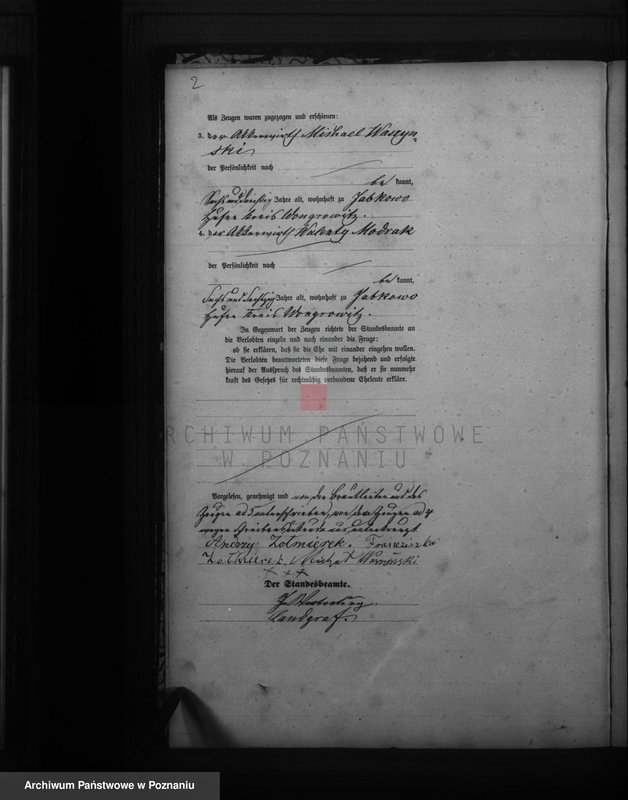 2
Als Zeugen waren zugezogen und erschienen:
3. der Ackerwirth Michael Waszyn
ski
der Persönlichkeit nach
be kannt,
Sechs und dreißig Jahre alt, wohnhaft zu Jabkowo
Hufen Kreis Wongrowitz.
4. der Ackerwirth Walenty Modrak
der Persönlichkeit nach
be kannt,
Sechs und sechszig Jahre alt, wohnhaft zu Jabkowo
Hufen Kreis Wongrowitz.
In Gegenwart der Zeugen richtete der Standesbeamte an
die Verlobten einzeln und nach einander die Frage:
ob sie erklären, daß sie die Ehe mit einander eingehen wollen.
Die Verlobten beantworteten diese Frage bejahend und erfolgte
hierauf der Ausspruch des Standesbeamten, daß er sie nunmehr
kraft des Gesetzes für rechtmäßig verbundene Eheleute erkläre.
ARCHIWUM PAŃSTWOWE
W POZNANIU
Vorgelesen, genehmigt und von den Brautleuten und des
Zeugen ad 3 unterschrieben, von dem Zeugen ad 4
wegen unterkreuzt
Andrzy Żołmierek. Franciszka
Żołmierek. Michał Waszyński
+ + +
Der Standesbeamte.
Landgraf.
Archiwum Państwowe w Poznaniu